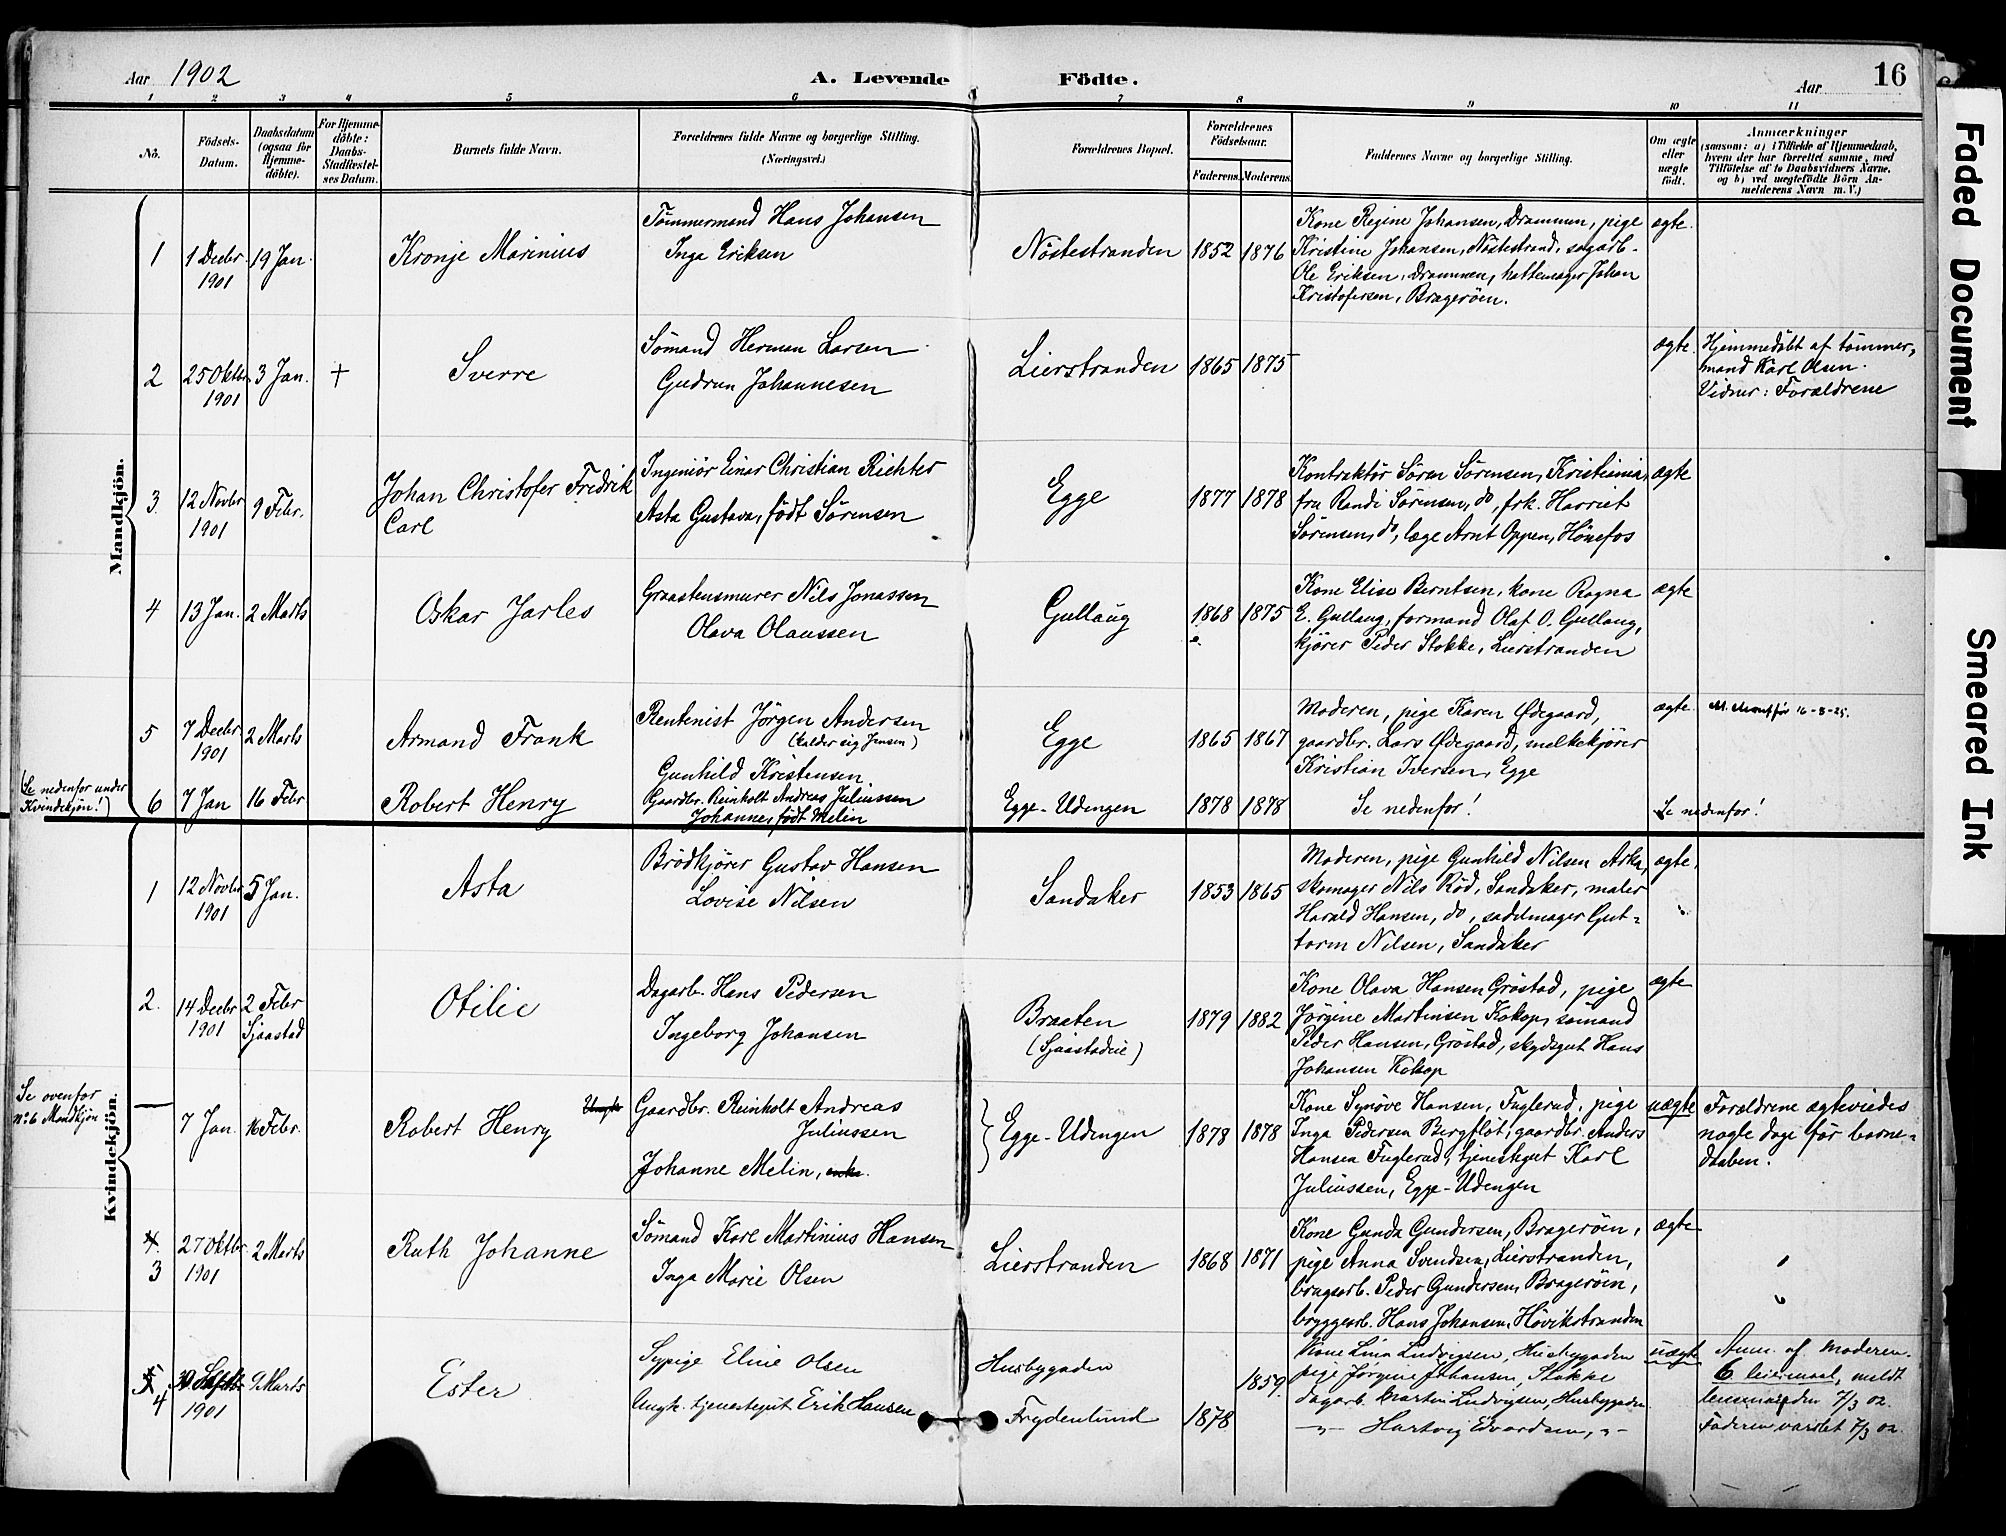 Aar 1902
A. Levende Födte.
Aar
16
1 2 3 4 5 6 7 8 9 10 11
No.
Födsels-
Datum.
Daabsdatum
(ogsaa for
Hjemme-
döbte).
For Hjemme-
döbte:
Daabs-
Stadfæstel-
ses Datum.
Barnets fulde Navn.
Forældrenes fulde Navne og borgerlige Stilling.
(Næringsvei.)
Forældrenes Bopæl.
Forældrenes
Födselsaar.
Faderens. Moderens.
Faddernes Navne og borgerlige Stilling.
Om ægte
eller
uægte
födt.
Anmærkninger
(saasom: a) i Tilfælde af Hjemmedaab,
hvem der har forrettet samme, med
Tilföielse af to Daabsvidners Navne.
og b) ved uægtefödte Börn An-
melderens Navn m. V.)
Mandkjön.
1
1 Decbr.
1901
19 Jan.
Kronje Marinius
Tømmermand Hans Johansen
Inga Eriksen
Nöstestranden
1852 1876
Kone Regine Johansen, Drammen, pige
Kristine Johansen, Nöstestrand, sagarb.
Ole Eriksen, Drammen, hattemager Johan
Kristofersen, Bragerøen.
ægte.
2
25 Oktbr.
1901
3 Jan.
+
Sverre
Sømand Herman Larsen
Gudrun Johannesen
Lierstranden
1865 1875
ægte.
Hjemmedøbt af tømmer-
mand Karl Olsen.
Vidner: Forældrene
3.
12 Novbr
1901
9 Febr.
Johan Christofer Fredrik
Carl
Ingeniør Einar Christian Richter
Asta Gustava, født Sørensen
Egge
1877 1878
Kontraktør Søren Sørensen, Kristiania,
fru Randi Sørensen, do, frk. Harriet
Sørensen, do, læge Arnt Oppen, Hönefos
ægte
4
13 Jan.
2 Marts
Oskar Jarles
Graastensmurer Nils Jonassen
Olava Olaussen
Gullaug
1868 1875
Kone Elise Berntsen, kone Ragna
E. Gullaug, formand Olaf O. Gullaug,
kjører Peder Stokke, Lierstranden
ægte
5
7 Decbr
1901
2 Marts
Armand Frank
Rentenist Jörgen Andersen
(kalder sig Jensen)
Gunhild Kristensen.
Egge
1865 1867
Moderen, pige Karen Ødegaard,
gaardbr. Lars Ødegaard, melkekjører
Kristian Iversen, Egge
ægte.
16-8-25.
(Se nedenfor under
Kvindekjøn!)
6
7 Jan
16 Febr
Robert Henry
Gaardbr. Reinholt Andreas Juliussen
Johanne, født Melin
Egge-Udengen
1878 1878
Se nedenfor!
Se nedenfor!
Kvindekjön.
1
12 Novbr
1901
5 Jan.
Asta
Brödkjører Gustav Hansen
Lovise Nilsen
Sandaker
1853 1865
Moderen, pige Gunhild Nilsen Aska,
skomager Nils Röd, Sandaker, maler
Harald Hansen, do, sadelmager Gut-
torm Nilsen, Sandaker
ægte.
2.
14 Decbr
1901
2 Febr
Sjaastad
Otilie
Dagarb. Hans Pedersen
Ingeborg Johansen
Braaten
(Sjaastadeie)
1879 1882
Kone Olava Hansen Gröstad, pige
Jørgine Martinsen Kokop, sømand
Peder Hansen, Gröstad, skydsgut Hans
Johansen Kokop
ægte
Se ovenfor
No 6 Mandkjøn
7 Jan.
16 Febr.
Robert Henry
Ungk.
Gaardbr. Reinholt Andreas
Juliussen
Johanne Melin, enke.
Egge-Udengen
1878 1878
Kone Synøve Hansen, Fuglerud, pige
Inga Pedersen Bergflot, gaardbr. Anders
Hansen Fuglerud, tjenestegut Karl
Juliussen, Egge-Udengen
uægte
Forældrene ægteviedes
nogle dage før barne-
daaben.
4.
3
27 Oktbr.
1901
2 Marts
Ruth Johanne
Sømand Karl Martinius Hansen
Inga Marie Olsen
Lierstranden
1868 1871
Kone Gunda Gundersen, Bragerøen,
pige Anna Svendsen, Lierstranden,
brugsarb. Peder Gundersen, Bragerøen,
bryggearb. Hans Johansen, Hövikstranden
ægte
5
4
30 Septbr.
1901
9 Marts
Ester
Sypige Eline Olsen
Ungk. tjenestegut Erik Hansen
Husbygaden
Frydenlund
1859.
1878
Kone Lina Ludvigsen, Husbygaden
pige Jørgine Johansen, Stokke
dagarb. Martin Ludvigsen, Husbygaden
-"- Hartvig Edvardsen, -"-
uægte
Anm. af moderen.
6. leiermaal, meldt
7/3 02.
Faderen varslet 7/3 02.
Faded Document
Smeared Ink